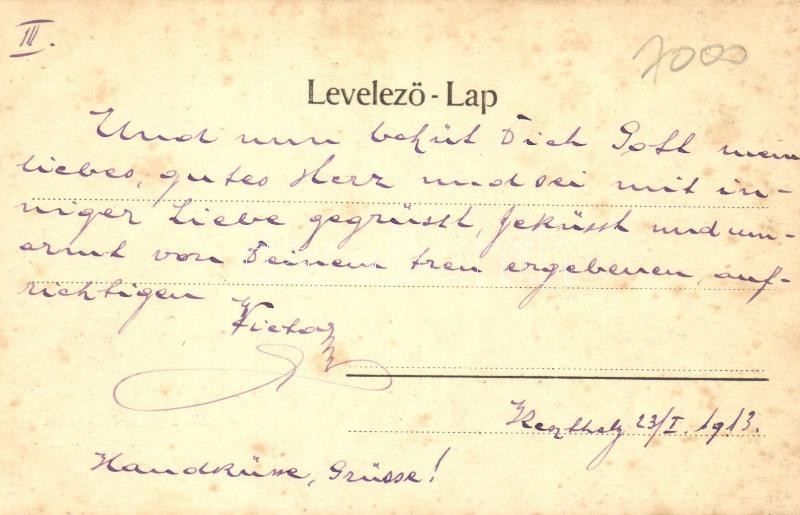 III.
7000
Levelező-Lap
Und nun behüt Dich Gott mein
liebes, gutes Herz und sei mit in-
niger Liebe gegrüsst, geküsst und um-
armt von Deinem treu ergebenen, auf-
richtigen
Victor
Keszthely 23/I. 1913.
Handküsse, Grüsse!